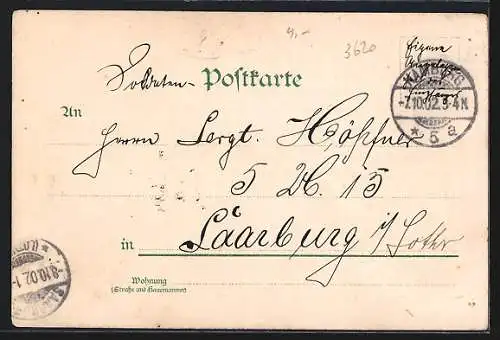 4,-
3620
Eigene
Angelegenheit
des
Empfängers
Soldaten- Postkarte
-7.10.02.3-4N.
* 5 a
An
Herrn Sergt. Höpfner
5
15
in Saarburg i/ Lothr
-8.10.02.1-
Wohnung
(Straße und Hausnummer)